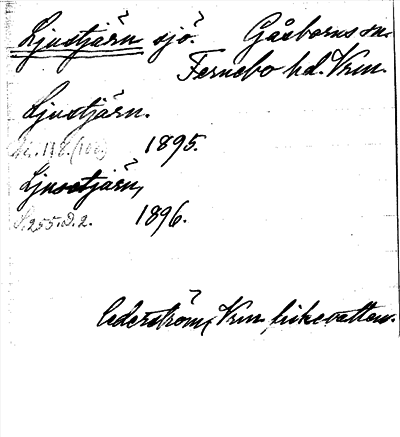 Ljustjärn sjö. Gåsborns sn.
Fernebo hd. Vrm.
Ljustjärn.
118. (100) 1895.
Ljustjärn,
S. 255. D. 2. 1896.
Cederström, Vrm fiskevatten.